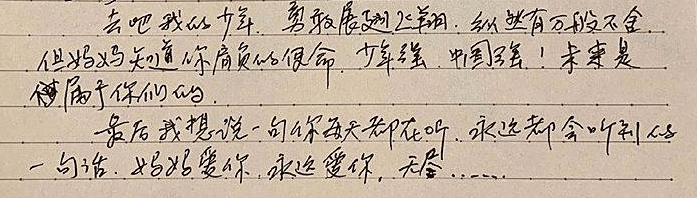 去吧我的少年，勇敢展翅飞翔，纵然有万般不舍，
但妈妈知道你肩负的使命，少年强，中国强！未来是
属于你们的。
最后我想说一句你每天都在听，永远都会听到的
一句话，妈妈爱你，永远爱你，无尽……